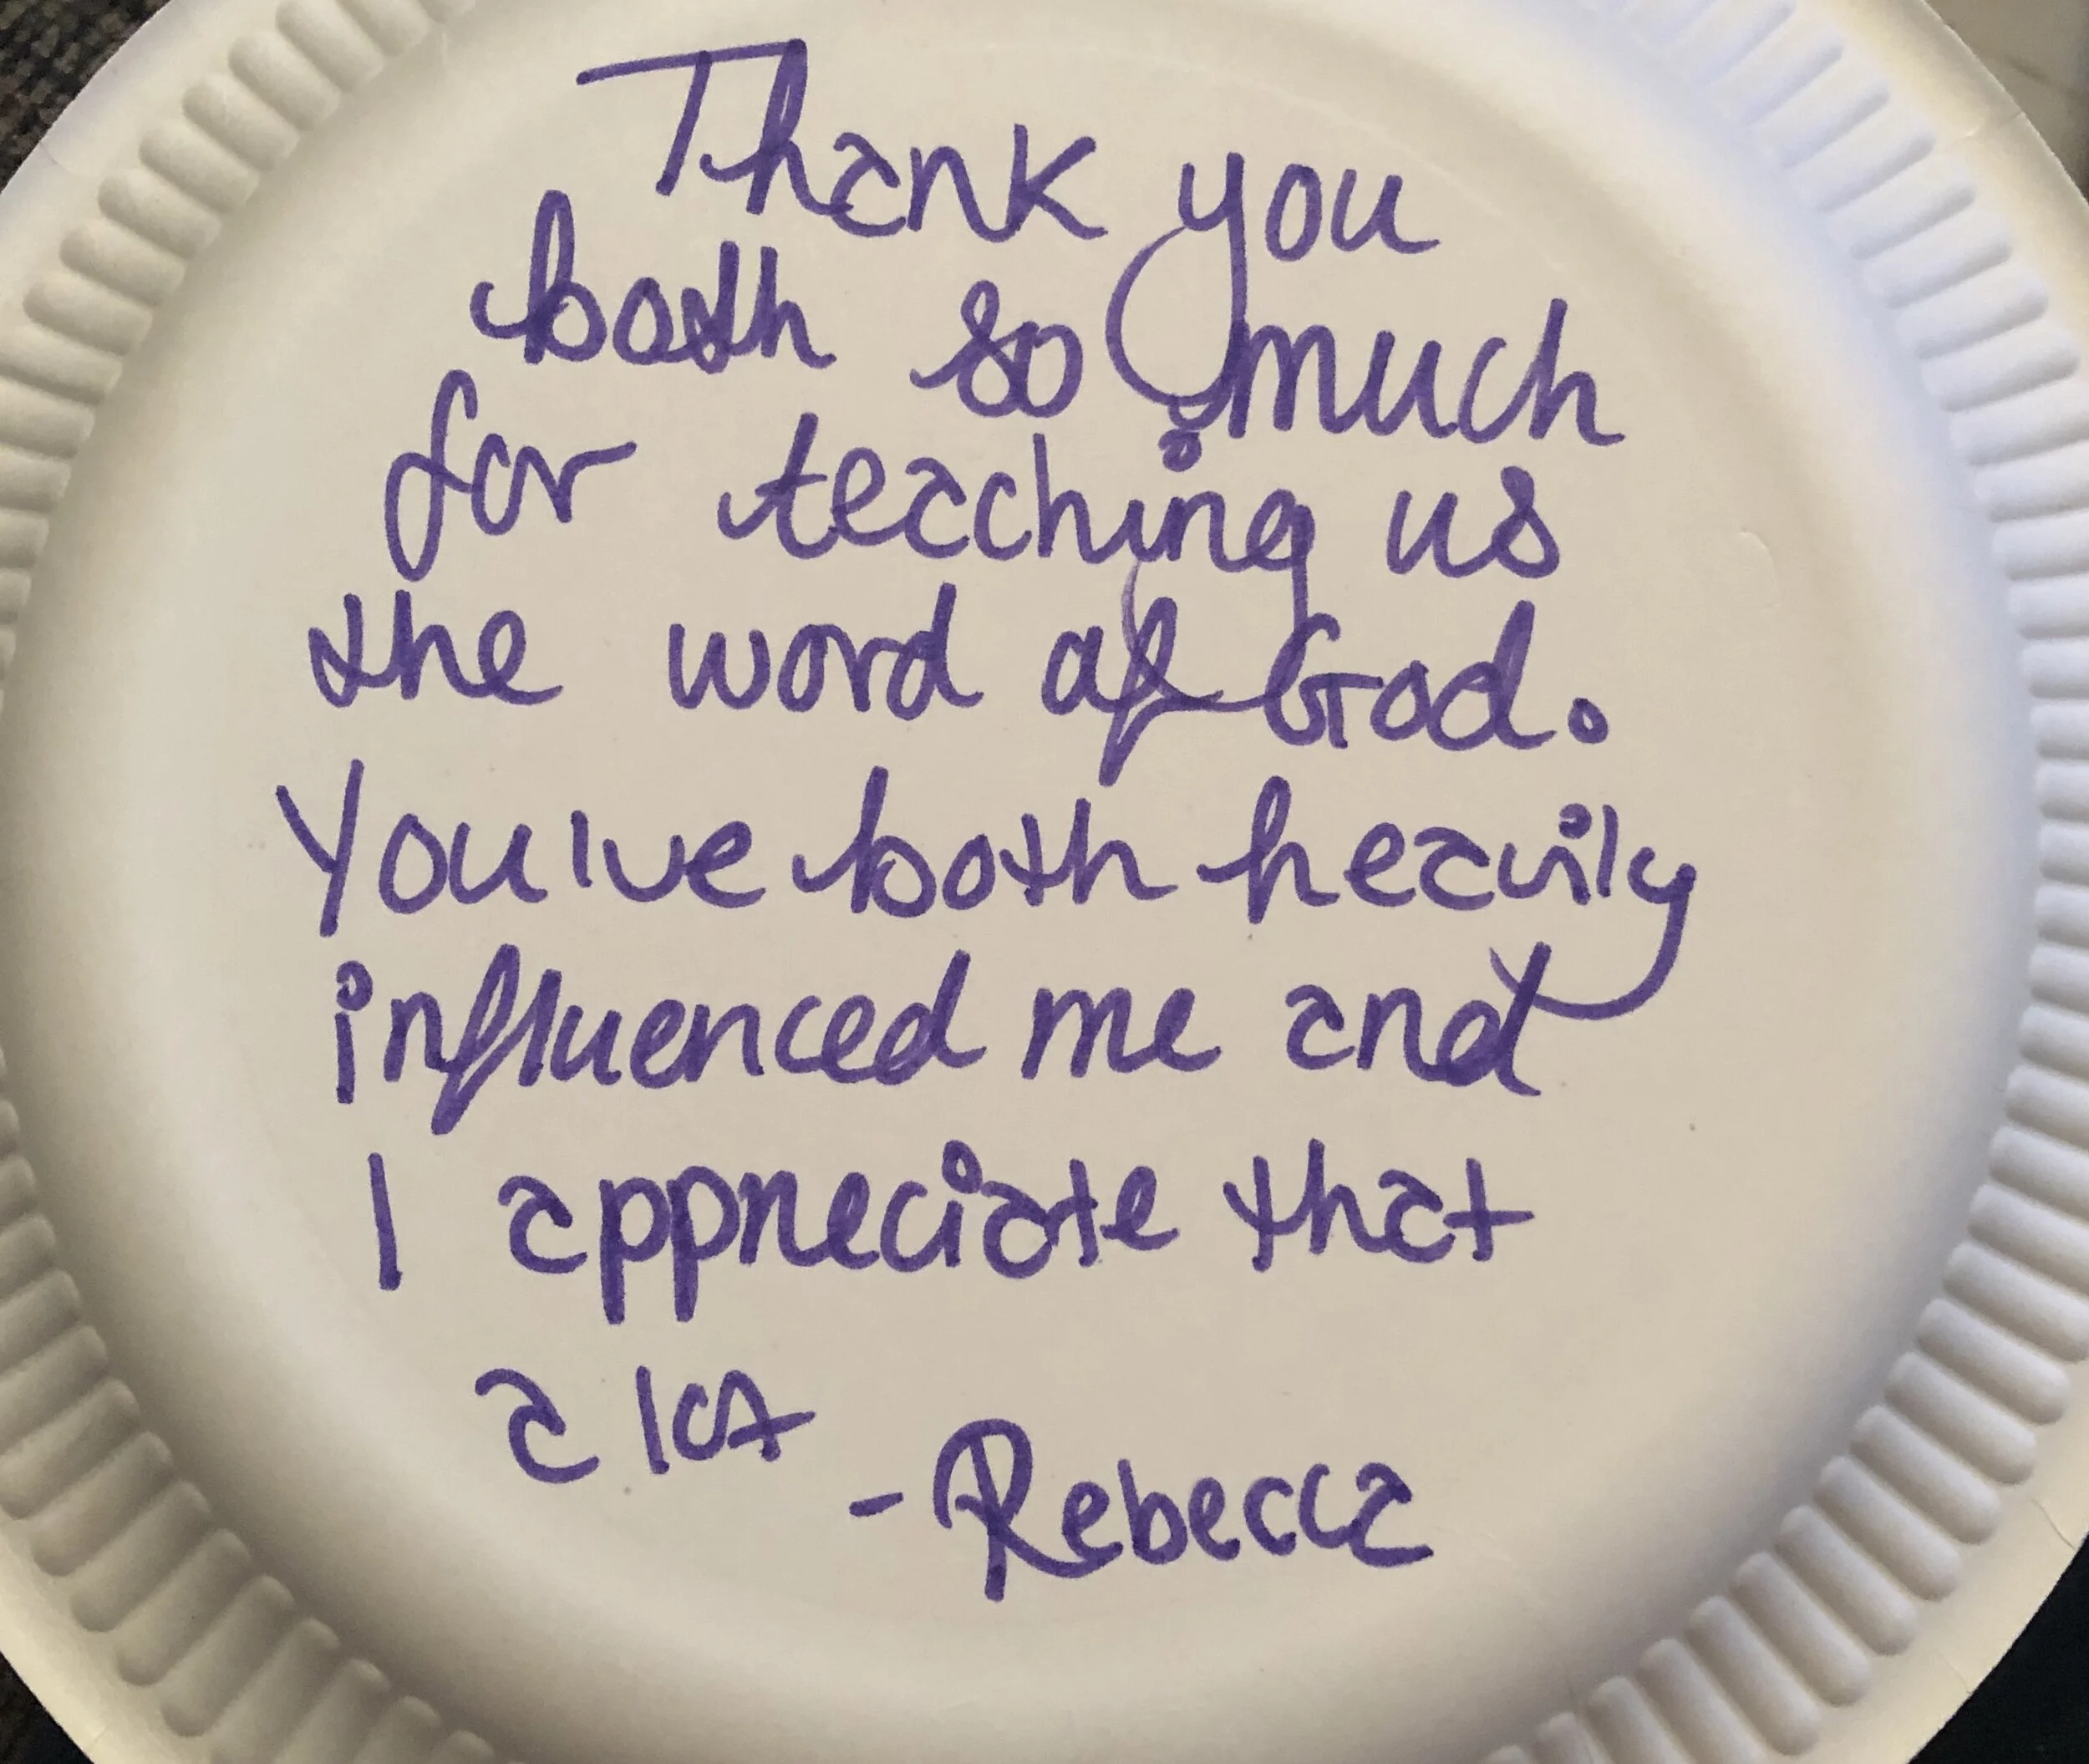 Thank you
both so much
for teaching us
the word of God.
You've both heavily
influenced me and
I appreciate that
a lot
-Rebecca